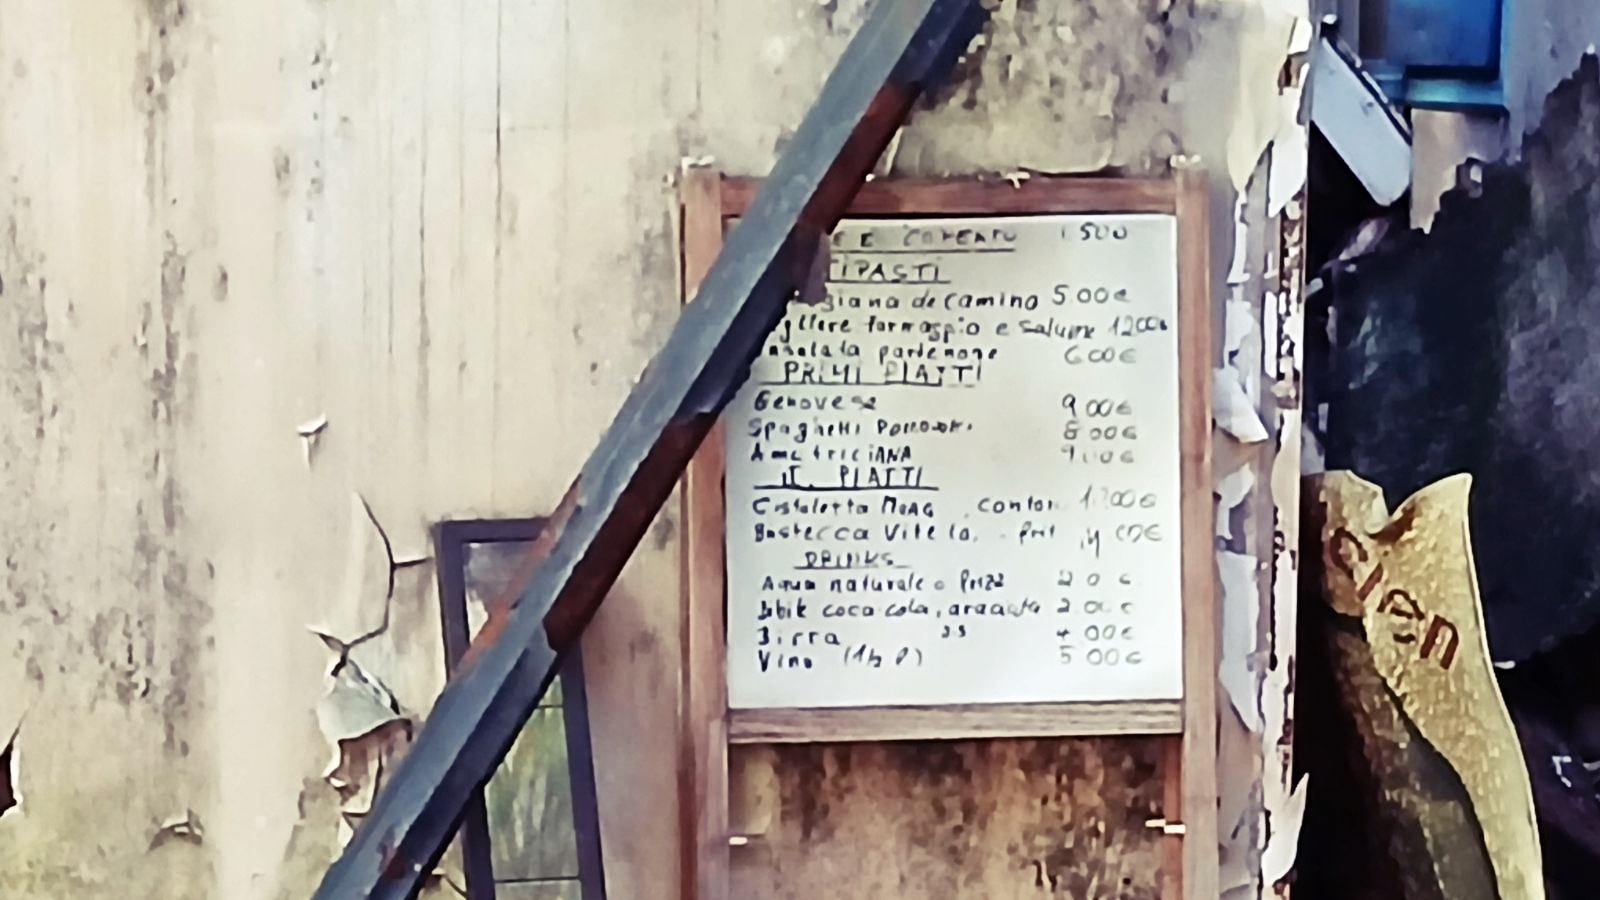 E E COPERTO 1.500
TIPASTI
giana de camino 5 00€
gliere formaggio e salume 1200€
nsalata partenope 6 00€
PRIMI PIATTI
Genovese 9 00€
Spaghetti 8 00€
AmatriciANA 9 00€
II. PIATTI
Costoletta contor
Bistecca Vitello €
DRINKS
Aqua naturale o frizz 2 0 €
coca cola, araciata 2 00 €
Birra 33 4 00€
Vino (1/2 l) 5 00€
chen